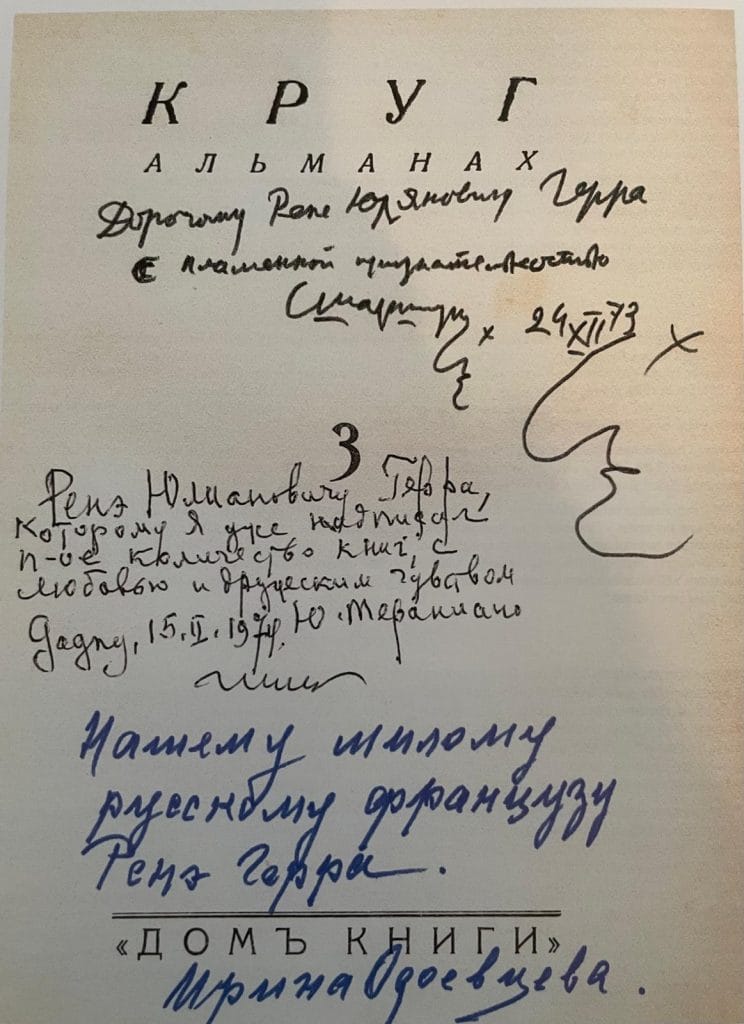 КРУГ
АЛЬМАНАХ
Дорогому Рене Юлиановичу Герра
с пламенной признательностью
24 XII 73
3
Ренэ Юлиановичу Герра,
которому я уже надписал
n-ое количество книг, с
любовью и дружеским чувством
Gagny, 15.II.1974. Ю. Терапиано
Нашему милому
русскому французу
Ренэ Герра.
«ДОМЪ КНИГИ»
Ирина Одоевцева.